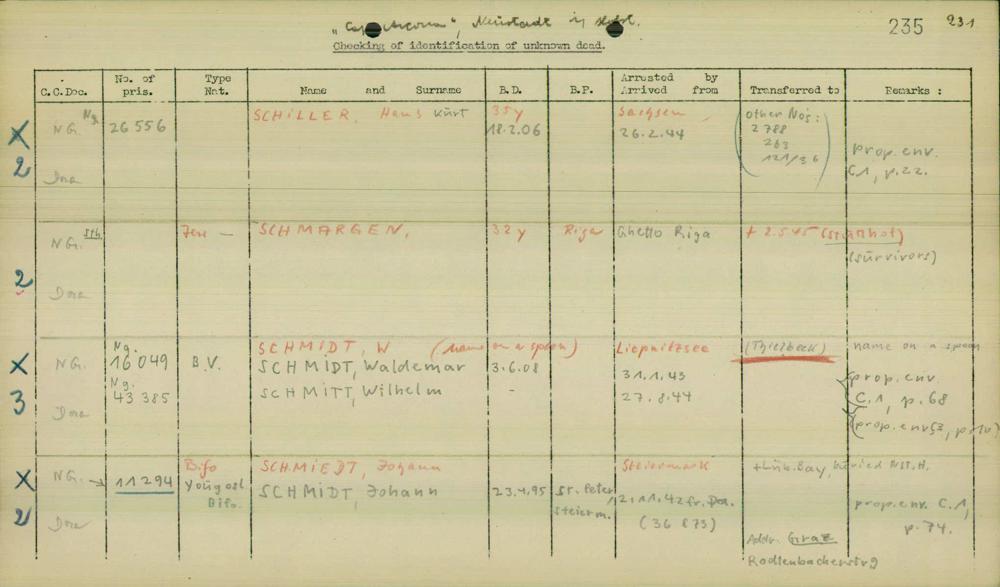 „Cap Arcona", Neustadt in Holst.
235 231
Checking of identification of unknown dead.
C.C.Doc. No. of pris. Type Nat. Name and Surname B.D. B.P. Arrested by Arrived from Transferred to Remarks :
X NG. Ng. 26 556 SCHILLER, Hans Kurt 35y Sachsen other Nos:
18.2.06 26.2.44 2 788
263
121/36
prop. env.
C1, p.22.
2 Dora
NG. Sth. SCHMARGEN, 32 y Riga Ghetto Riga + 2.5.45 (Stutthof)
(survivors)
2 Dora
Ng. SCHMIDT, W (name on a spoon) Liepnitzsee (Thielbeck) name on a spoon
X NG. 16 049 B.V. SCHMIDT, Waldemar 3.6.08 31.1.43 prop. env.
Ng. C.1, p.68
3 Dora 43 385 SCHMITT, Wilhelm - 27.8.44
Bifo SCHMIEDT, Johann Steiermark + Lüb. Bay, buried NST.H.
X NG. → 11 294 SCHMIDT, Johann 23.4.95 St. Peter 2.11.42 fr. Da. prop. env. C.1,
Bifo. Steierm. (36 873) p.74.
2 Dora Addr. Graz